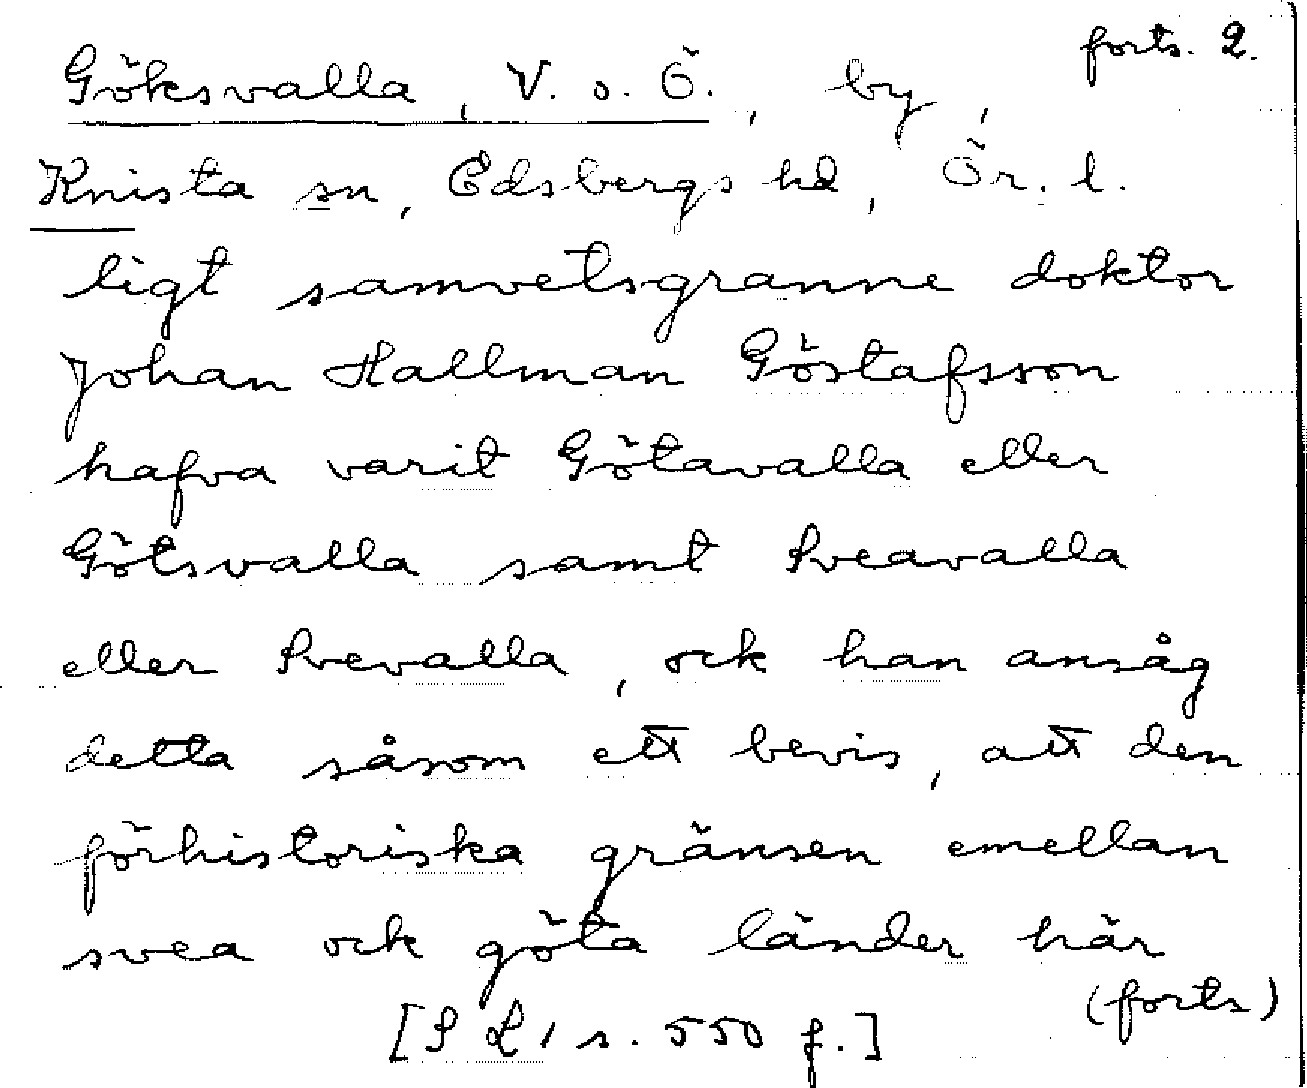 forts. 2.
Göksvalla, V. o. Ö., by,
Knista sn, Edsbergs hd, Ör. l.
ligt samvetsgranne doktor
Johan Hallman Göstafsson
hafva varit Götavalla eller
Götsvalla samt Sveavalla
eller Svevalla, ock han ansåg
detta såsom ett bevis, att den
förhistoriska gränsen emellan
svea ock göta länder här
(forts)
[S L 1 s. 550 f.]